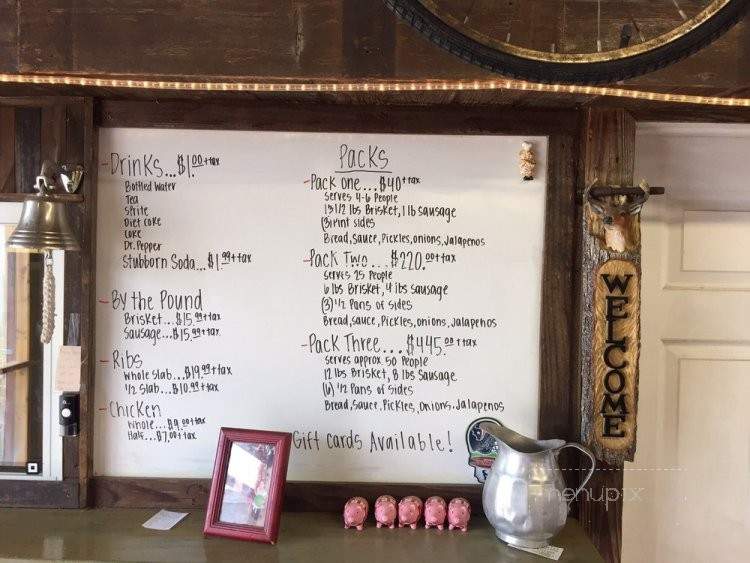 -Drinks...$1.00+tax
Bottled Water
Tea
Sprite
Diet Coke
Coke
Dr. Pepper
Stubborn Soda...$1.99+tax
-By the Pound
Brisket...$15.99+tax
Sausage...$15.99+tax
-Ribs
Whole Slab...$19.99+tax
1/2 Slab...$10.99+tax
-Chicken
Whole...$9.00+tax
Half...$7.00+tax
Packs
-Pack one...$40+tax
Serves 4-6 People
1 1/2 lbs Brisket, 1 lb sausage
(3) Pint sides
Bread, Sauce, Pickles, onions, Jalapenos
-Pack Two...$220.00+tax
Serves 25 People
6 lbs Brisket, 4 lbs sausage
(3) 1/2 Pans of sides
Bread, Sauce, Pickles, onions, Jalapenos
-Pack Three...$445.00+tax
Serves approx. 50 People
12 lbs Brisket, 8 lbs Sausage
(6) 1/2 Pans of Sides
Bread, Sauce, Pickles, Onions, Jalapenos
Gift cards Available!
WELCOME
menupix